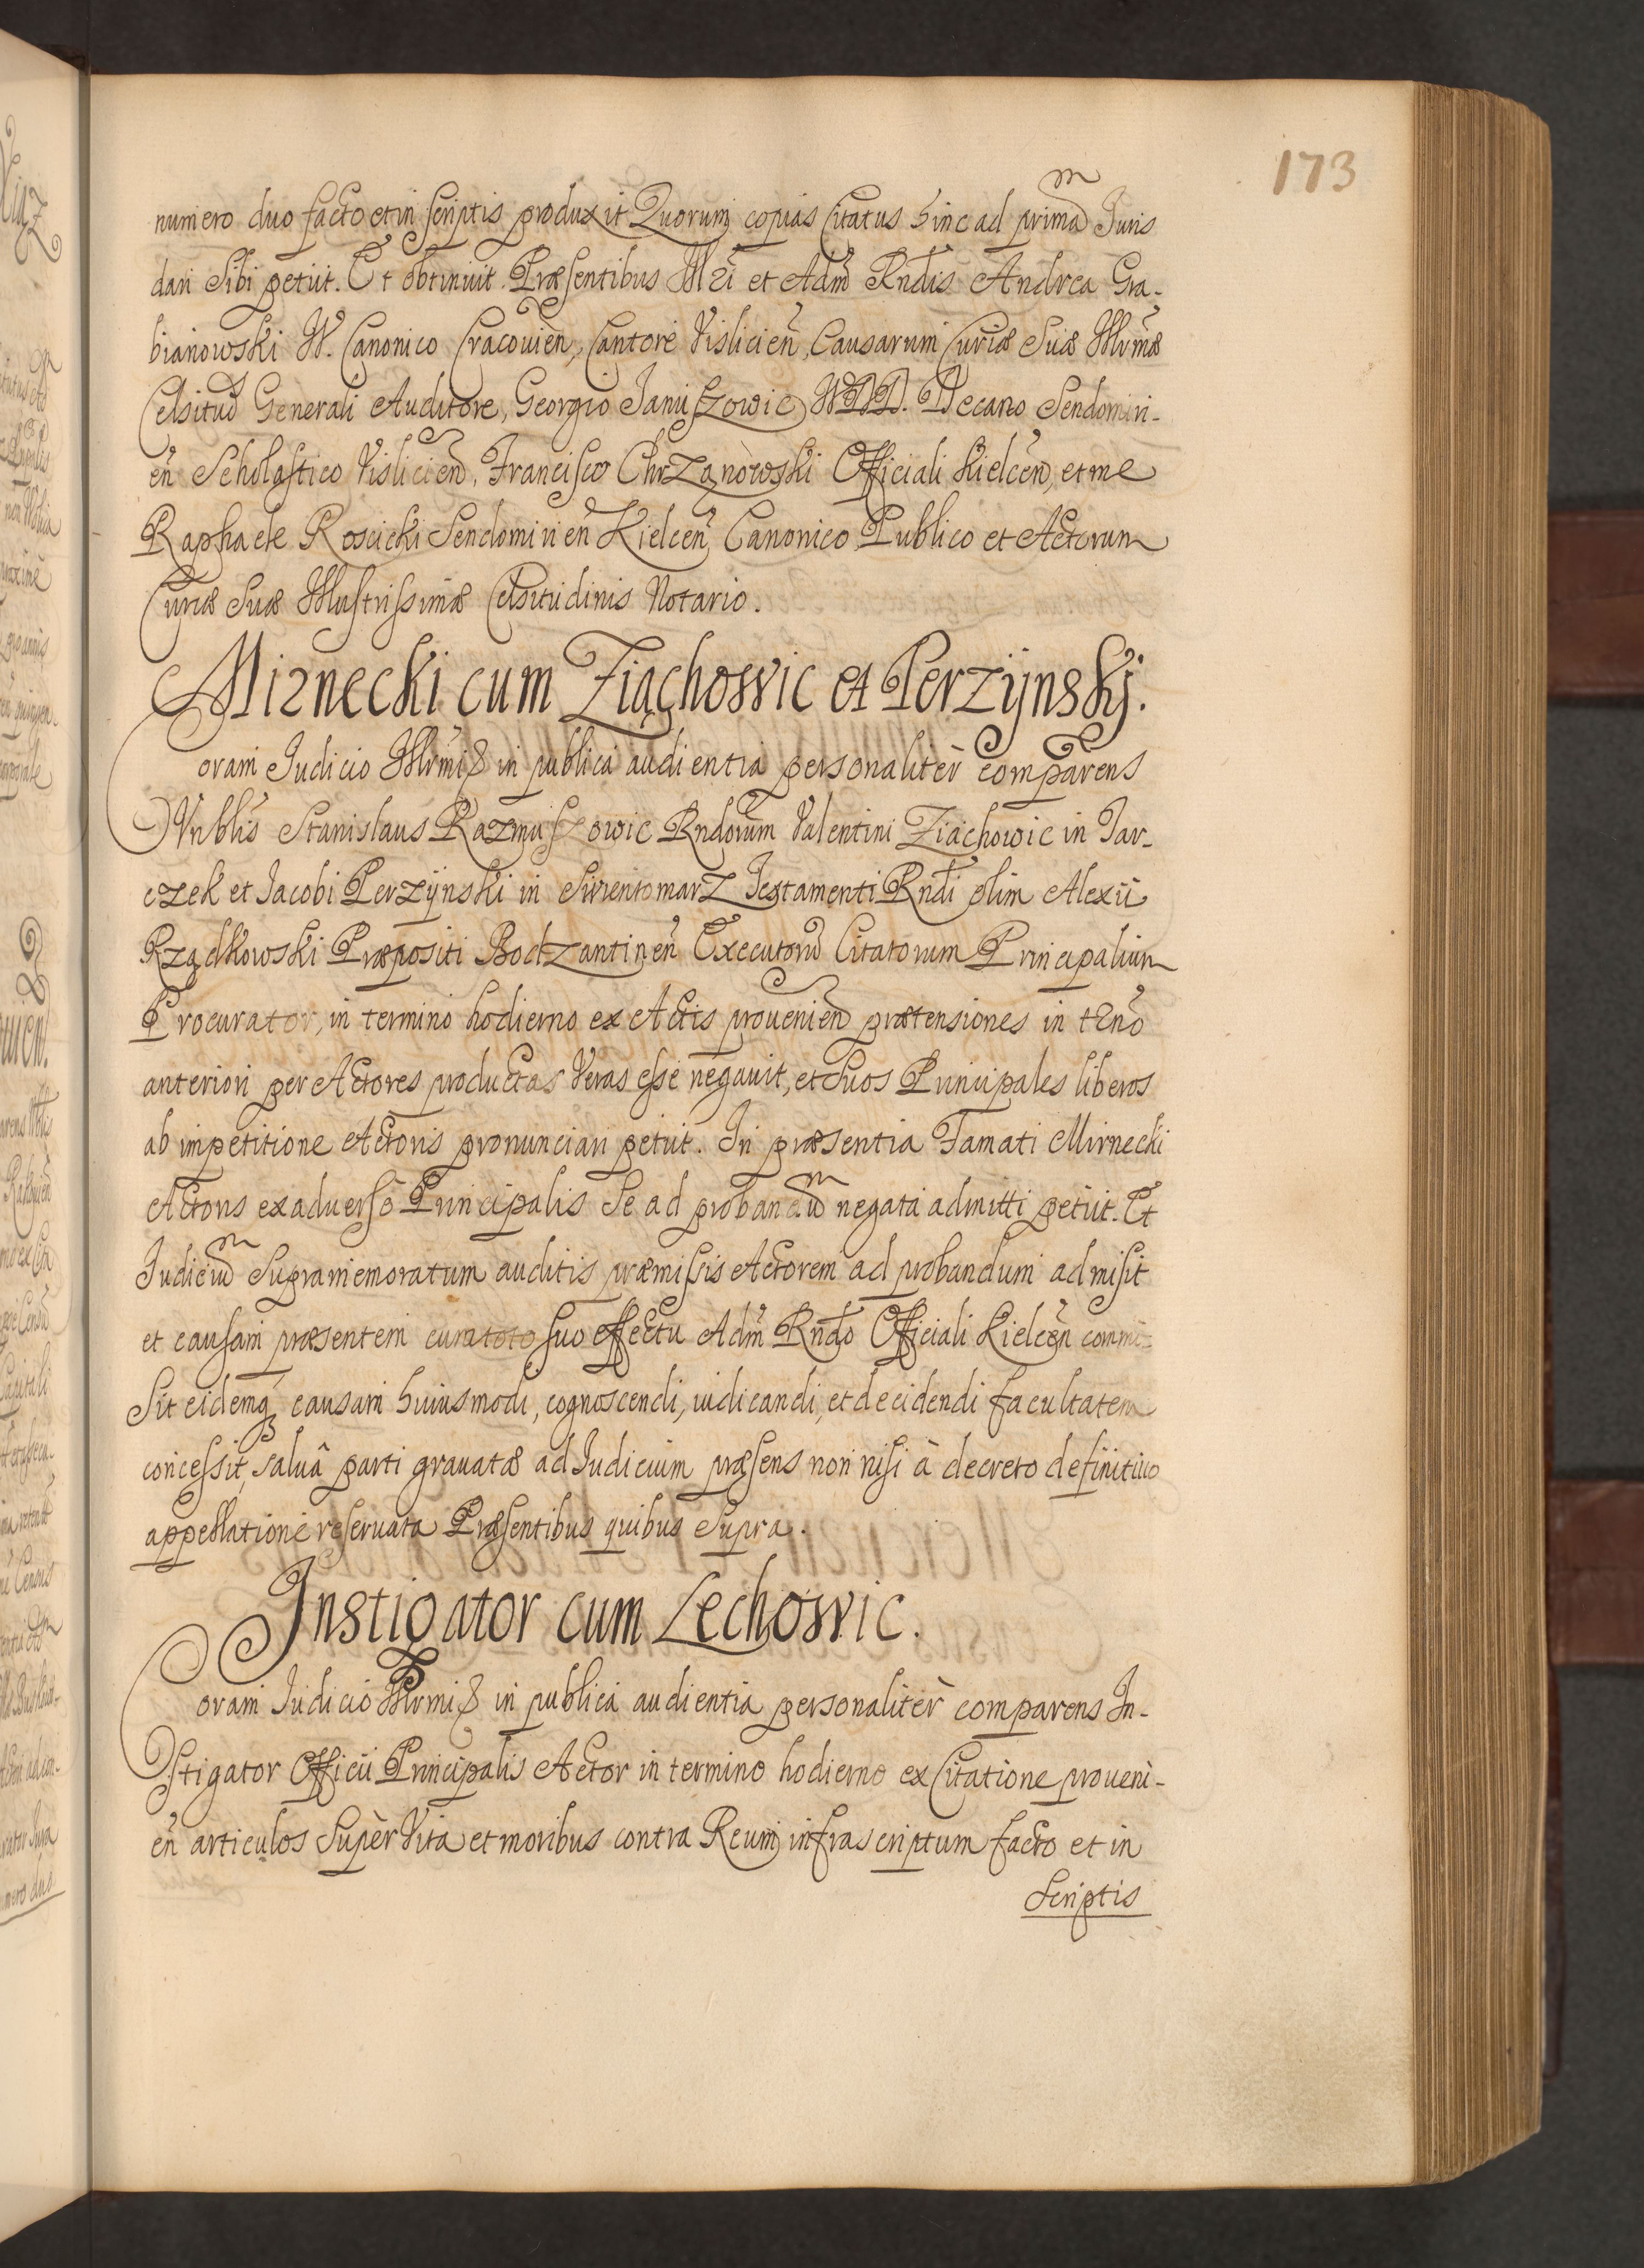 173
numero duo facto et in scriptis produxit Quorum copias Citatus hinc ad primam Juris
dari Sibi petiit. Et obtinuit. Præsentibus Illri et Adm Rndis Andrea Gra-
bianowski W. Canonico Cracouien, Cantore Vislicien, Causarum Curiæ Suæ Illrmæ
Celsitud Generali Auditore, Georgio Januszowic Decano Sendomiri-
en Scholastico Vislicien, Francisco Chrzanowski Officiali Kielcen, et me
Raphaele Roscicki Sendomirien Kielcen Canonico Publico et Actorum
Curiæ Suæ Illustrissimæ Celsitudinis Notario.
Mirnecki cum Ziąchowic et Perzÿnskj.
Coram Judicio Illrmi & in publica audientia personalitèr comparens
Vnblis Stanislaus Razmuszowic Rndorum Valentini Ziąchowic in Tar-
czek et Jacobi Perzÿnski in Swientomarz Testamenti Rndi olim Alexii
Rządkowski Præpositi Bodzantinen Executorum Citatorum Principalium
Procurator, in termino hodierno ex Actis prouenien prætensiones in termino
anteriori per Actores productas Veras esse negauit, et Suos Principales liberos
ab impetitione Actoris pronunciari petiit. In præsentia Famati Mirnecki
Actoris ex aduerso Principalis Se ad probandum negata admitti petiit. Et
Judicium Supramemoratum auditis præmissis Actorem ad probandum admisit
et causam præsentem cum toto suo effectu Adm Rndo Officiali Kielcen commi-
Sit eidemq causam huiusmodi, cognoscendi, iudicandi, et decidendi facultatem
concessit, saluâ parti grauatæ ad Judicium præsens non nisi à decreto definitiuo
appellatione reseruata Præsentibus quibus Supra.
Instigator cum Lechowic.
Coram Judicio Illrmi & in publica audientia personalitèr comparens In-
stigator Officii Principalis Actor in termino hodierno ex Citatione proueni-
en articulos Supèr Vita et moribus contra Reum infrascriptum facto et in
Scriptis